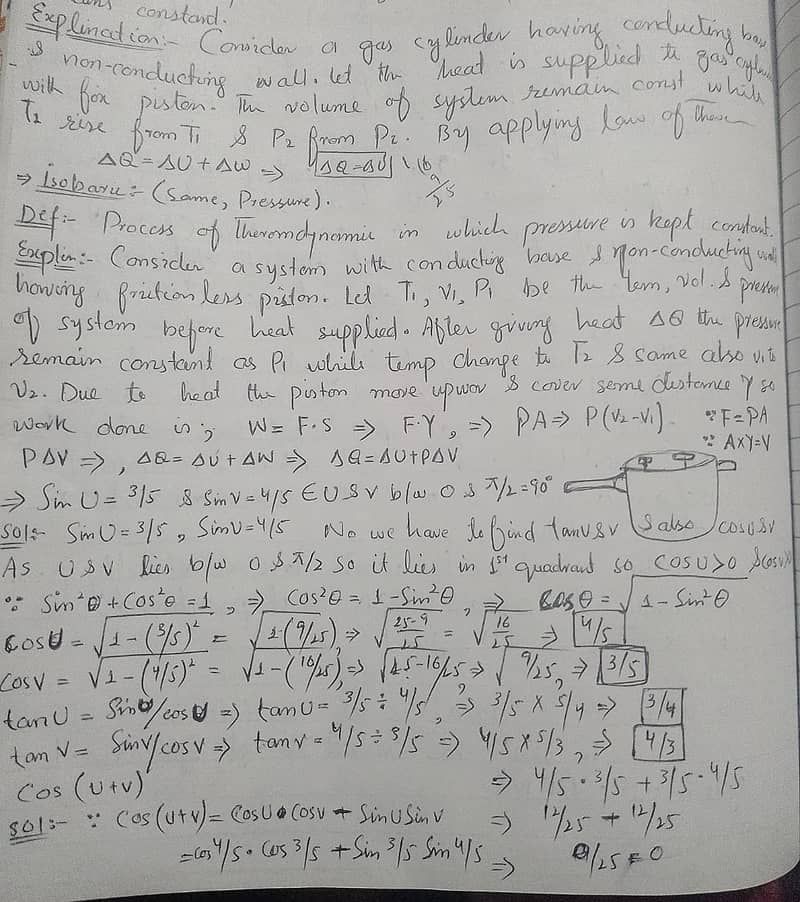 constant.
Explination:- Consider a gas cylinder having conducting base
& non-conducting wall. let the heat is supplied to gas
with fox piston. The volume of system remain const while
T2 rise from T1 & P2 from P2. By applying law of
ΔQ = ΔU + ΔW => ΔQ = ΔU
9/25
=> Isobaric:- (Same, Pressure).
Def:- Process of Theromdynamic in which pressure is kept constant.
Explin:- Consider a system with conducting base & non-conducting wall
having frictionless piston. Let T1, V1, P1 be the tem, vol. & pressure
of system before heat supplied. After giving heat ΔQ the pressure
remain constant as P1 while temp change to T2 & same also v1 to
V2. Due to heat the piston move upwar & cover some distance Y so
work done is; W = F.S => F.Y, => PA => P(V2-V1) ∵ F=PA
PΔV =>, ΔQ = ΔU + ΔW => ΔQ = ΔU + PΔV ∵ A×Y=V
=> Sin U = 3/5 & sin V = 4/5 ∈ U & V b/w 0 & π/2 = 90°
Sol:- Sin U = 3/5, Sin V = 4/5 No we have to find tan U & V & also cos U & V
As U & V lies b/w 0 & π/2 so it lies in 1st quadrant so cos U>0 & cos V>
∵ Sin²θ + Cos²θ = 1, => Cos²θ = 1 - Sin²θ, => Cos θ = √1 - Sin²θ
Cos U = √1 - (3/5)² = √1(9/25), => √25-9/25 = √16/25 => 4/5
Cos V = √1 - (4/5)² = √1 - (16/25), => √25-16/25 => √9/25, => 3/5
tan U = Sin U/cos U => tan U = 3/5 ÷ 4/5, => 3/5 × 5/4 => 3/4
tan V = Sin V/cos V => tan V = 4/5 ÷ 3/5 => 4/5 × 5/3, => 4/3
Cos (U+V) => 4/5 · 3/5 + 3/5 · 4/5
Sol:- ∵ Cos (U+V) = Cos U • Cos V + Sin U Sin V => 12/25 + 12/25
= Cos 4/5 • Cos 3/5 + Sin 3/5 Sin 4/5 => 0/25 = 0